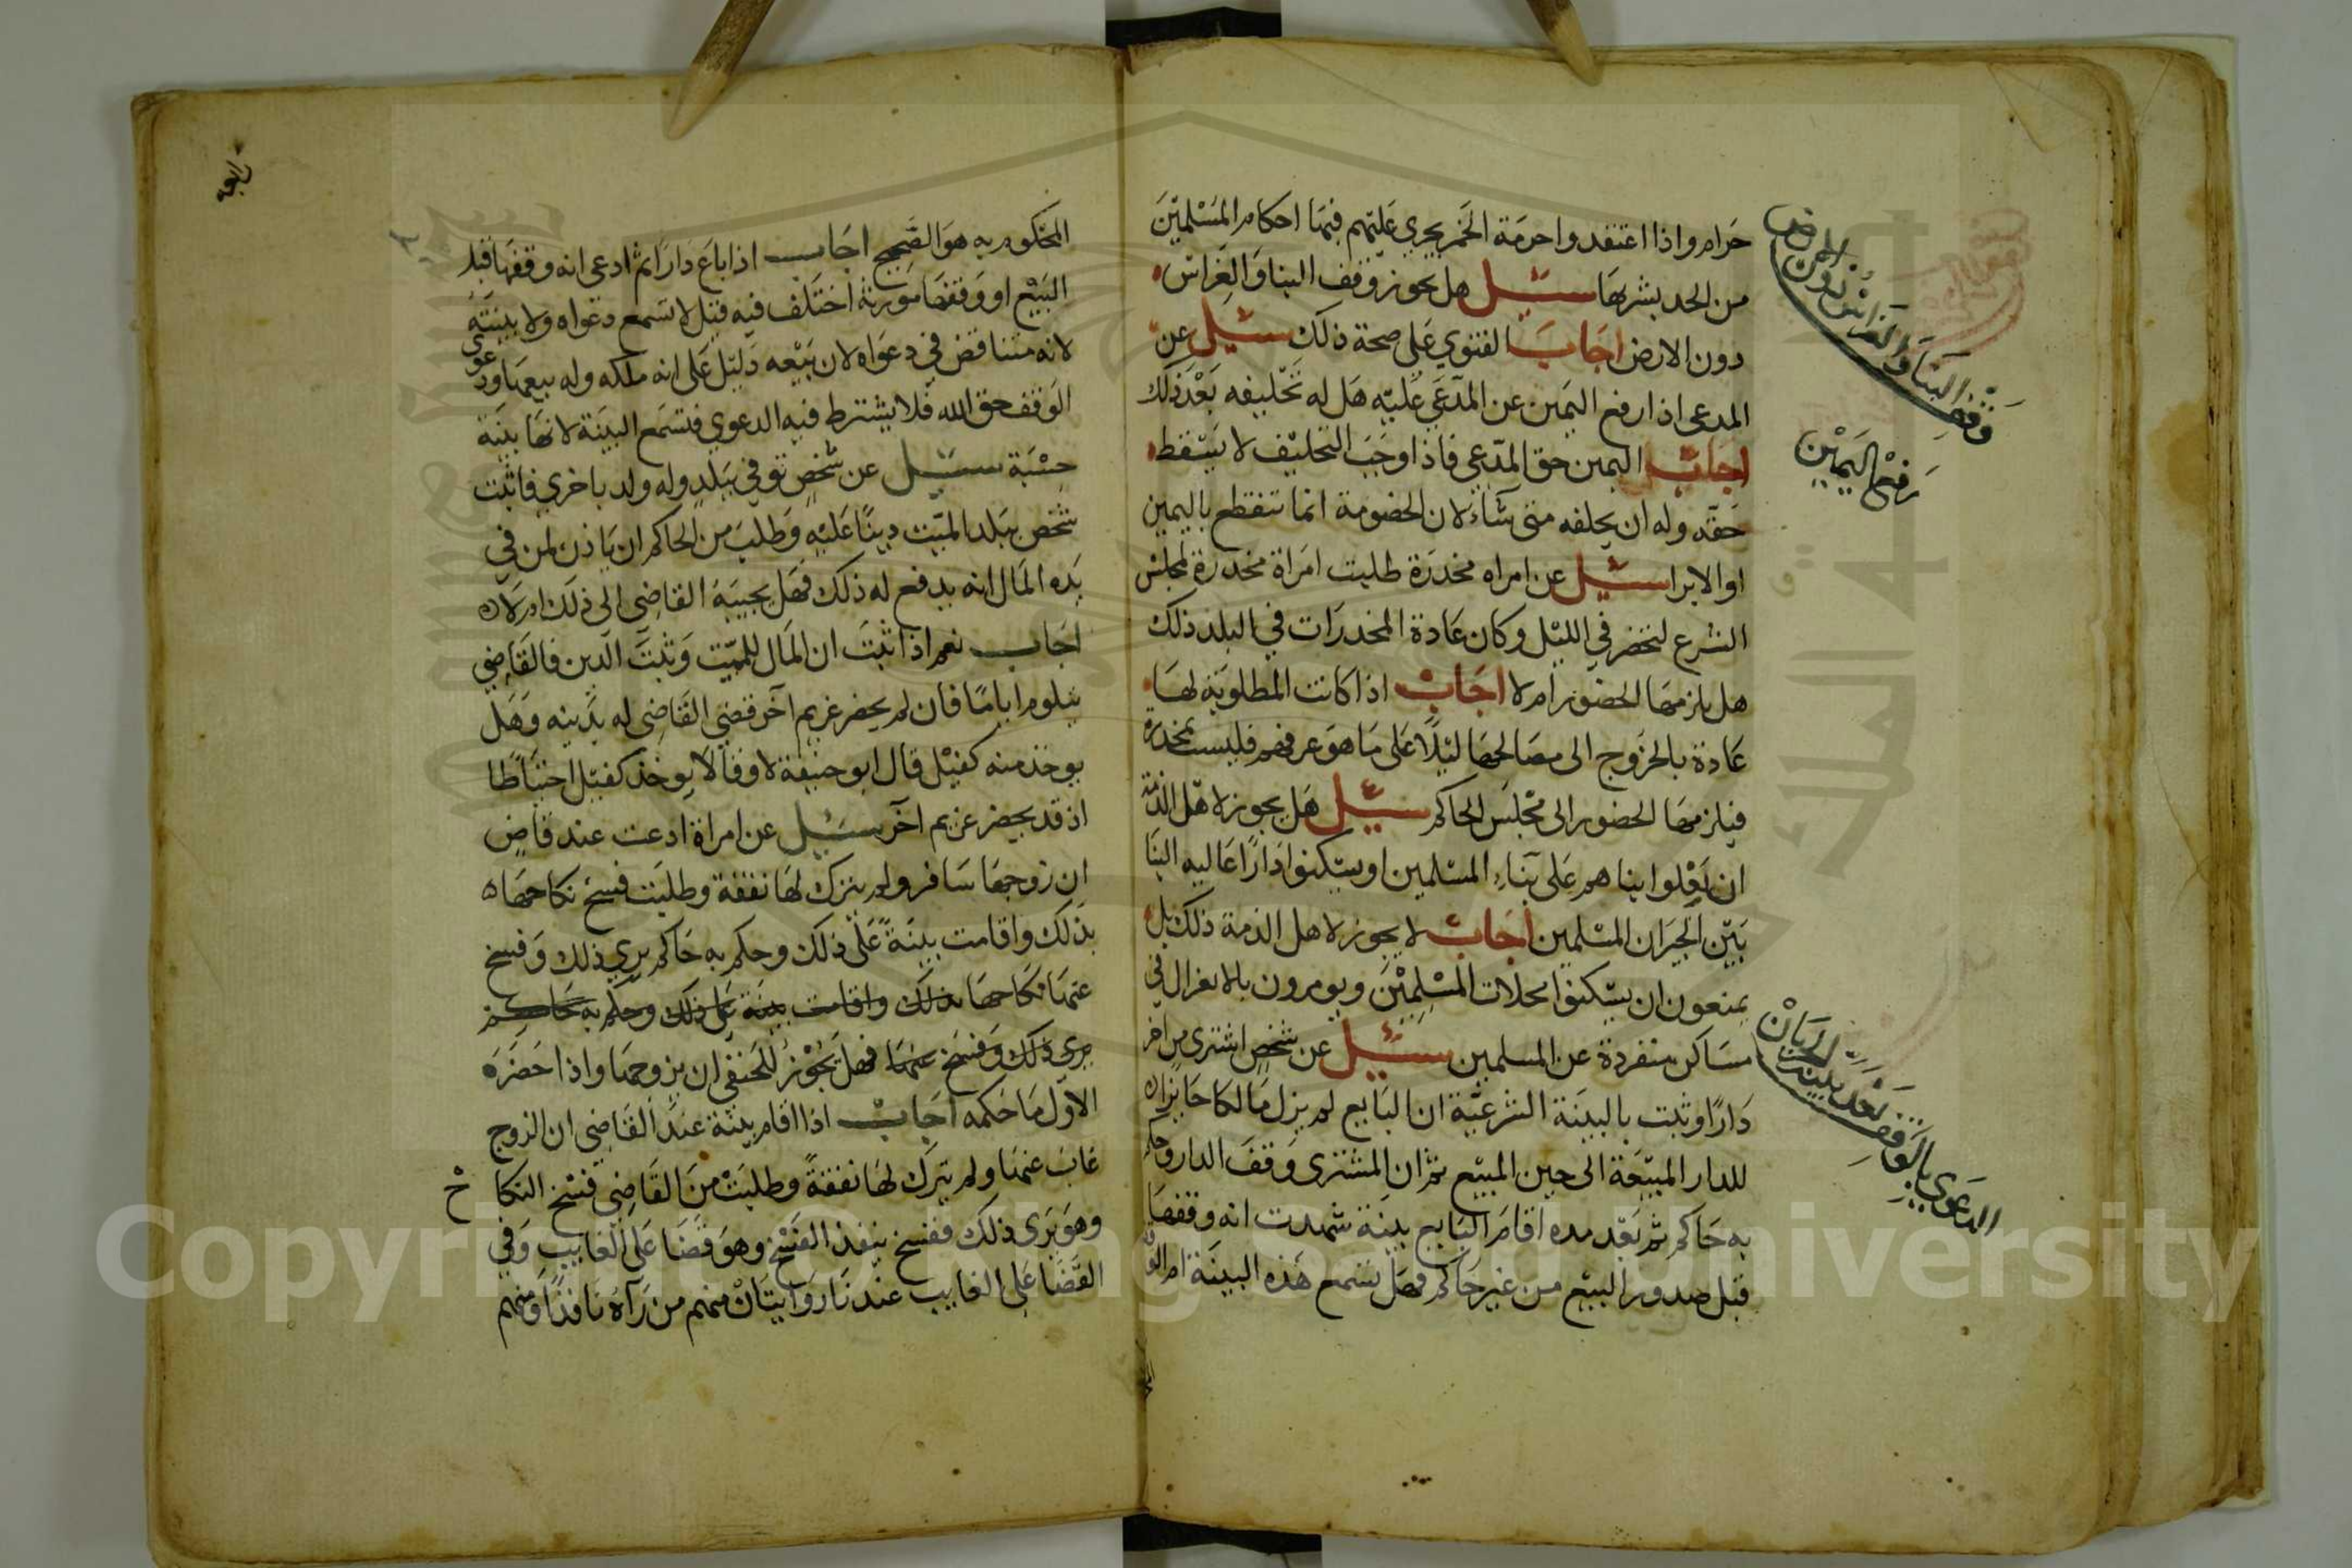 حرام واذا اعتقدوا حرمة الخمر يجري عليهم فيها احكام المسلمين
من الحد بشربها سئيل هل يجوز وقف البنا والغراس
دون الارض اجاب الفتوي على صحة ذلك سئيل عن
المدعى اذا رفع اليمين عن المدعي عليه هل له تحليفه بعد ذلك
اجاب اليمين حق المدعي فاذا وجب التحليف لا يسقط
حقه وله ان يحلفه متى شاء لان الخصومة انما تنقطع باليمين
او الابرا سئيل عن امراه مخدرة طلبت امراة مخدرة لمجلس
الشرع لتحضر في الليل وكان عادة المخدرات في البلد ذلك
هل يلزمها الحضور ام لا اجاب اذا كانت المطلوبة لها
عادة بالخروج الى مصالحها ليلا على ما هو عرفهم فليست بمخدرة
فيلزمها الحضور الى مجلس الحاكم سئيل هل يجوز لاهل الذمة
ان يعلوا بناهم على بناء المسلمين او يسكنوا دارا عاليه البنا
بين الجيران المسلمين اجاب لا يجوز لاهل الذمة ذلك بل
يمنعون ان يسكنوا محلات المسلمين ويومرون بالاعتزال في
مساكن منفردة عن المسلمين سئيل عن شخص اشترى من اخر
دارا وثبت بالبينة الشرعية ان البايع لم يزل مالكا حايزا
للدار المبيعة الى حين المبيع ثم ان المشترى وقف الدار وحكم
به حاكم ثم بعد مده اقام البايع بينة شهدت انه وقفها
قبل صدور البيع من غير حاكم فهل تسمع هذه البينة ام الوقف
وقف البنا والغراس دون الارض
رفع اليمين
الدعوى بالوقف بعد بيعه
المحكوم به هو الصحيح اجاب اذا باع دارا ثم ادعى انه وقفها قبل
البيع او وقفها مورثه اختلف فيه قيل لا تسمع دعواه ولا بينته
لانه متناقض في دعواه لان بيعه دليل على انه ملكه وله بيعها ودعوى
الوقف حق الله فلا يشترط فيه الدعوي فتسمع البينة لانها بينة
حسبة سئيل عن شخص توفي ببلد وله ولد باخري فاثبت
شخص ببلد الميت دينا عليه وطلب من الحاكم ان ياذن لمن في
يده المال انه يدفع له ذلك فهل يجيبه القاضي الى ذلك ام لا
اجاب نعم اذا ثبت ان المال للميت وثبت الدين فالقاضي
يتلوم اياما فان لم يحضر غريم آخر قضي القاضي له بدينه وهل
يوخذ منه كفيل قال ابو حنيفة لا وقالا يوخذ كفيل احتياطا
اذ قد يحضر غريم آخر سئيل عن امراة ادعت عند قاض
ان زوجها سافر ولم يترك لها نفقة وطلبت فسخ نكاحها
بذلك واقامت بينة على ذلك وحكم به حاكم يري ذلك وفسخ
عنها نكاحها بذلك واقامت بينة على ذلك وحكم به حاكم
يري ذلك وفسخ عنها فهل يجوز للحنفي ان يزوجها واذا حضر
الاول ما حكمه اجاب اذا اقام بينة عند القاضي ان الزوج
غاب عنها ولم يترك لها نفقة وطلبت من القاضي فسخ النكاح
وهو يرى ذلك ففسخ ينفذ الفسخ وهو قضا على الغايب وفي
القضا على الغايب عندنا روايتان منهم من رآه نافذا ومنهم
Copyright © King Saud University